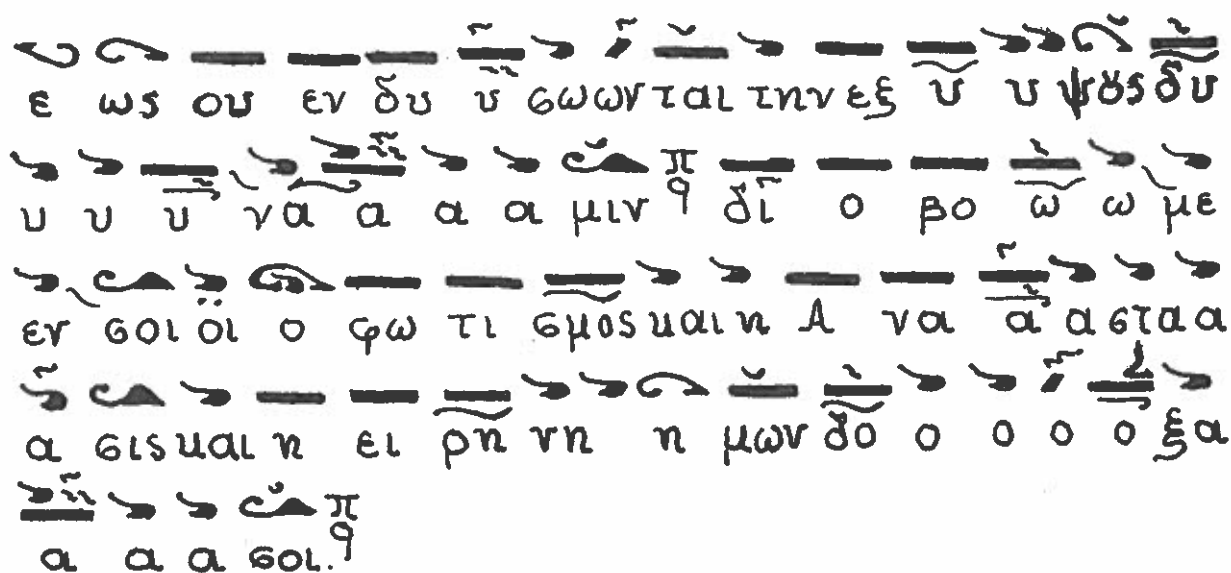 ε ως ου εν δυ υ σωων ται την εξ υ υ ψȣς δυ
υ υ υ να α α α μιν π q δι ο βο ω ω με
εν σοι οι ο φω τι σμος και η Α να α α στα α
α σις και η ει ρη νη η μων δο ο ο ο ο ξα
α α α σοι. π q